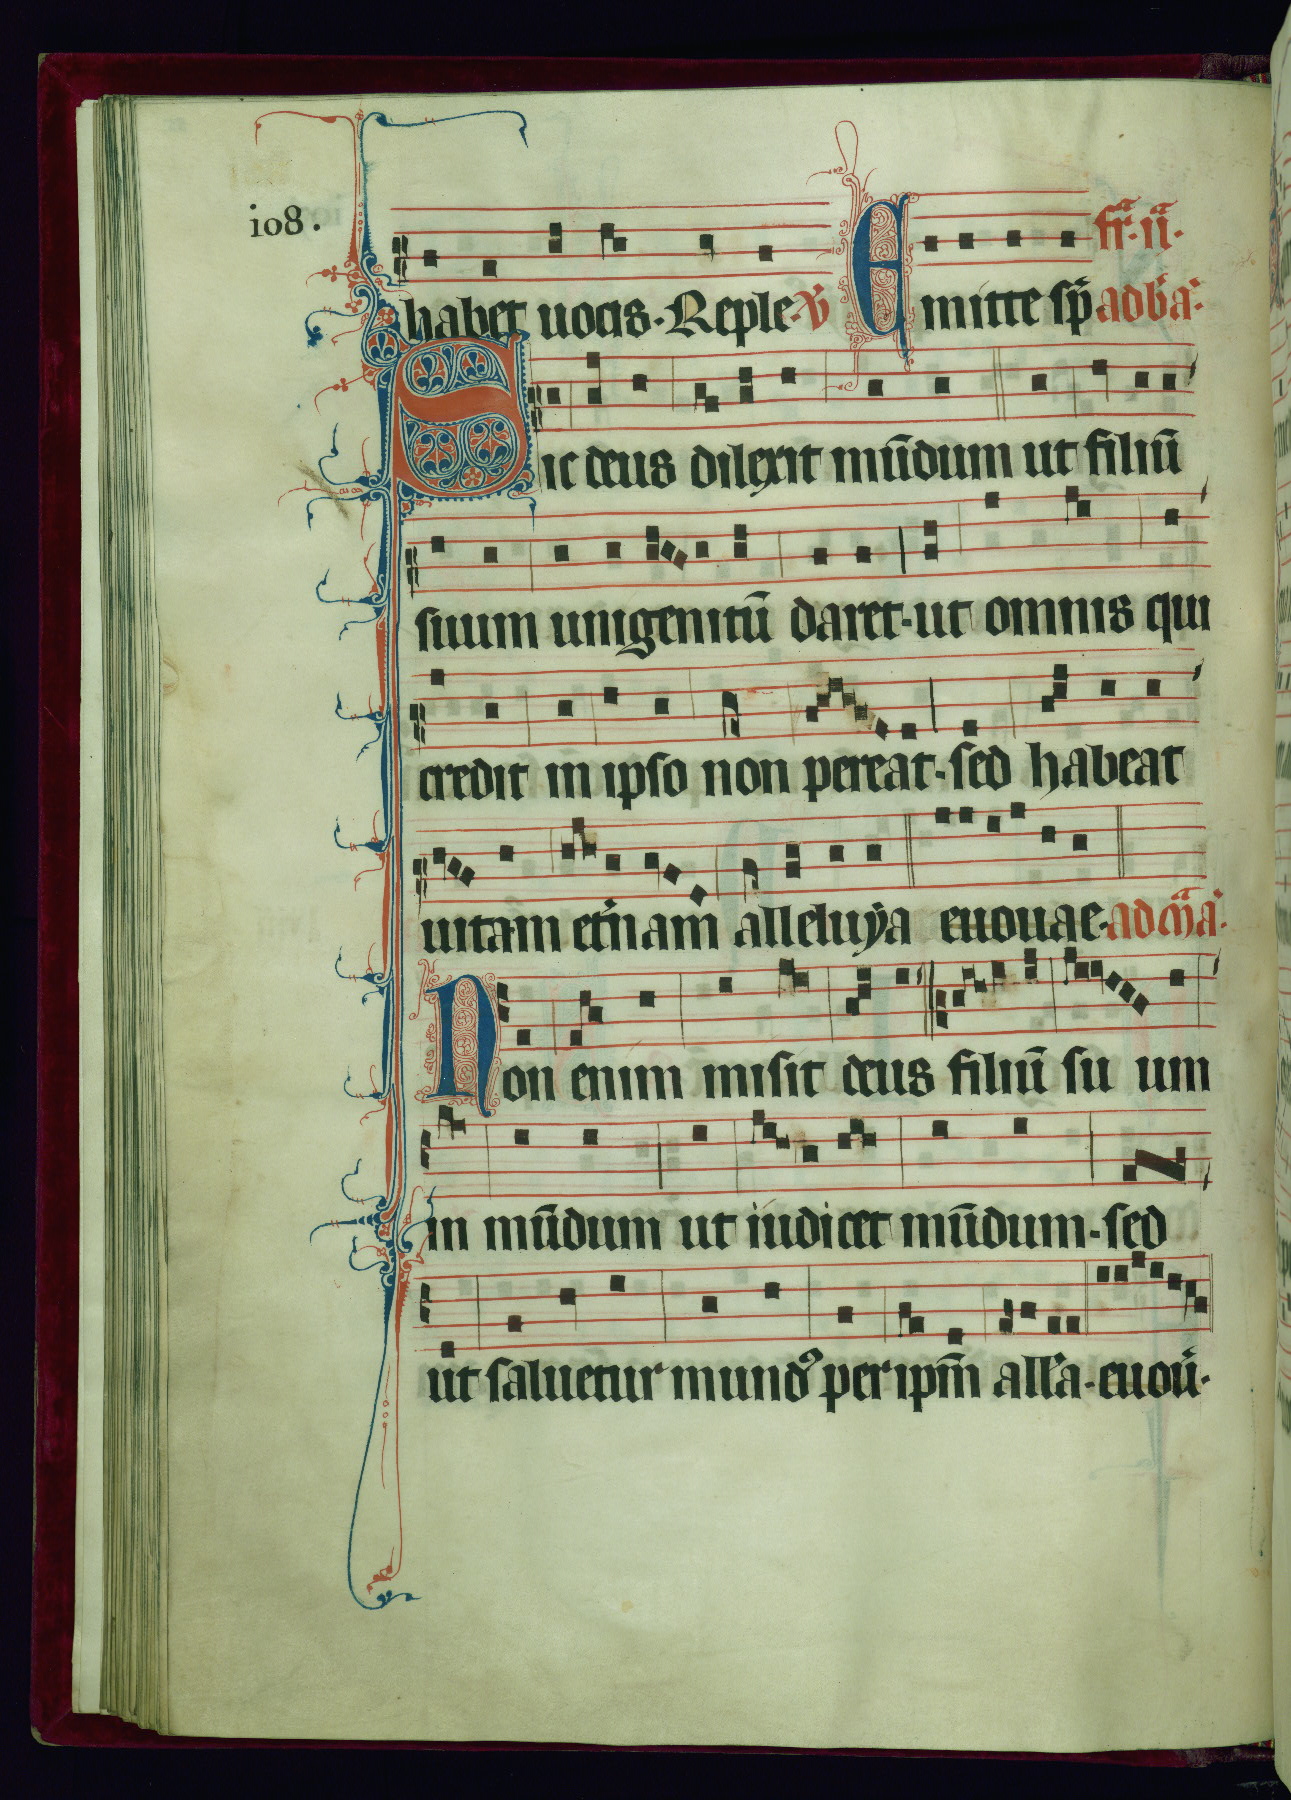 io8.
habet uocis. Reple. V Emitte sp̄ ad b̄a.
fr̄a. ii.
Sic deus dilexit mūdum ut filiū
suum unigenitū daret. ut omnis qui
credit in ipso non pereat. sed habeat
uitam et̄nam alleluya euouae. ad m̄a.
Non enim misit deus filiū su um
in mūdum ut iudicet mūdum. sed
ut saluetur mundꝰ per ipm̄ all'a. euoū.